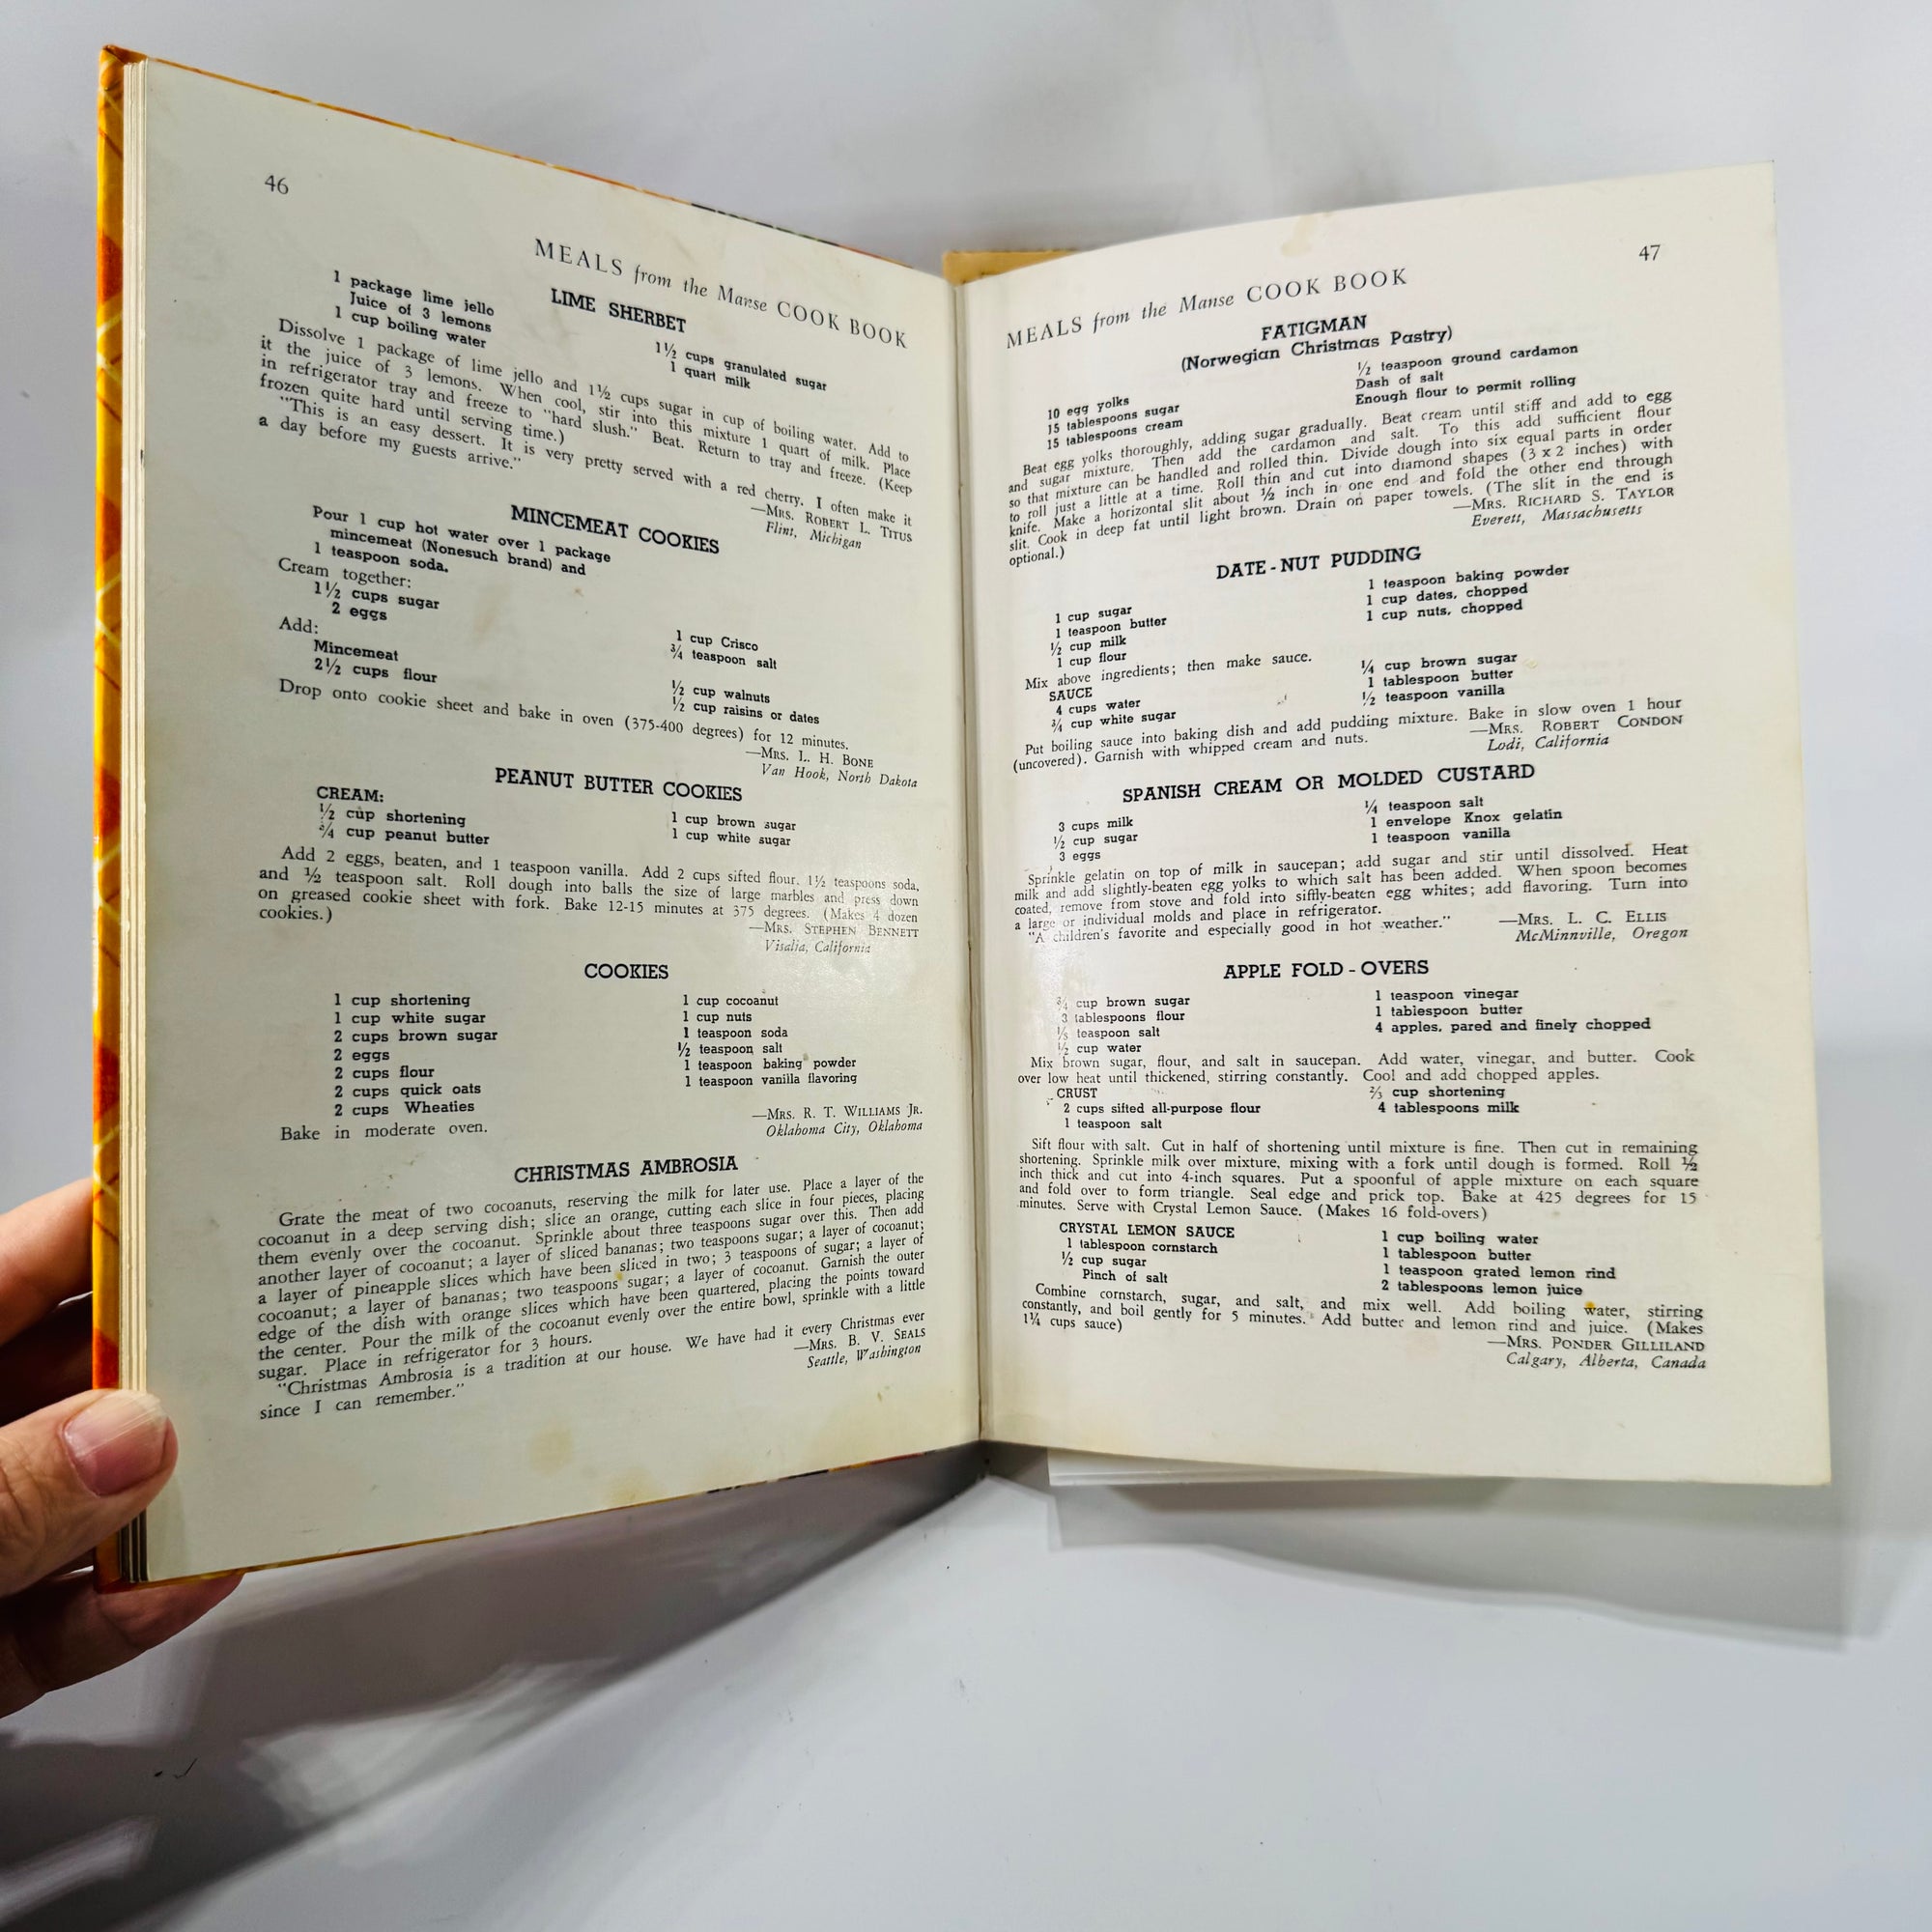 46
MEALS from the Manse COOK BOOK
LIME SHERBET
1 package lime jello
Juice of 3 lemons
1 cup boiling water
1½ cups granulated sugar
1 quart milk
Dissolve 1 package of lime jello and 1½ cups sugar in cup of boiling water. Add to
it the juice of 3 lemons. When cool, stir into this mixture 1 quart of milk. Place
in refrigerator tray and freeze to "hard slush." Beat. Return to tray and freeze. (Keep
frozen quite hard until serving time.)
"This is an easy dessert. It is very pretty served with a red cherry. I often make it
a day before my guests arrive."
—MRS. ROBERT L. TITUS
Flint, Michigan
MINCEMEAT COOKIES
Pour 1 cup hot water over 1 package
mincemeat (Nonesuch brand) and
1 teaspoon soda.
Cream together:
1½ cups sugar
2 eggs
1 cup Crisco
¾ teaspoon salt
Add:
Mincemeat
2½ cups flour
½ cup walnuts
½ cup raisins or dates
Drop onto cookie sheet and bake in oven (375-400 degrees) for 12 minutes.
—MRS. L. H. BONE
Van Hook, North Dakota
PEANUT BUTTER COOKIES
CREAM:
½ cup shortening
¾ cup peanut butter
1 cup brown sugar
1 cup white sugar
Add 2 eggs, beaten, and 1 teaspoon vanilla. Add 2 cups sifted flour, 1½ teaspoons soda,
and ½ teaspoon salt. Roll dough into balls the size of large marbles and press down
on greased cookie sheet with fork. Bake 12-15 minutes at 375 degrees. (Makes 4 dozen
cookies.)
—MRS. STEPHEN BENNETT
Visalia, California
COOKIES
1 cup shortening
1 cup white sugar
2 cups brown sugar
2 eggs
2 cups flour
2 cups quick oats
2 cups Wheaties
1 cup cocoanut
1 cup nuts
1 teaspoon soda
½ teaspoon salt
1 teaspoon baking powder
1 teaspoon vanilla flavoring
Bake in moderate oven.
—MRS. R. T. WILLIAMS JR.
Oklahoma City, Oklahoma
CHRISTMAS AMBROSIA
Grate the meat of two cocoanuts, reserving the milk for later use. Place a layer of the
cocoanut in a deep serving dish; slice an orange, cutting each slice in four pieces, placing
them evenly over the cocoanut. Sprinkle about three teaspoons sugar over this. Then add
another layer of cocoanut; a layer of sliced bananas; two teaspoons sugar; a layer of cocoanut;
a layer of pineapple slices which have been sliced in two; 3 teaspoons of sugar; a layer of
cocoanut; a layer of bananas; two teaspoons sugar; a layer of cocoanut. Garnish the outer
edge of the dish with orange slices which have been quartered, placing the points toward
the center. Pour the milk of the cocoanut evenly over the entire bowl, sprinkle with a little
sugar. Place in refrigerator for 3 hours.
"Christmas Ambrosia is a tradition at our house. We have had it every Christmas ever
since I can remember."
—MRS. B. V. SEALS
Seattle, Washington
47
MEALS from the Manse COOK BOOK
FATIGMAN
(Norwegian Christmas Pastry)
10 egg yolks
15 tablespoons sugar
15 tablespoons cream
½ teaspoon ground cardamon
Dash of salt
Enough flour to permit rolling
Beat egg yolks thoroughly, adding sugar gradually. Beat cream until stiff and add to egg
and sugar mixture. Then add the cardamon and salt. To this add sufficient flour
so that mixture can be handled and rolled thin. Divide dough into six equal parts in order
to roll just a little at a time. Roll thin and cut into diamond shapes (3 x 2 inches) with
knife. Make a horizontal slit about ½ inch in one end and fold the other end through
slit. Cook in deep fat until light brown. Drain on paper towels. (The slit in the end is
optional.)
—MRS. RICHARD S. TAYLOR
Everett, Massachusetts
DATE-NUT PUDDING
1 cup sugar
1 teaspoon butter
½ cup milk
1 cup flour
1 teaspoon baking powder
1 cup dates, chopped
1 cup nuts, chopped
Mix above ingredients; then make sauce.
SAUCE
4 cups water
¾ cup white sugar
¼ cup brown sugar
1 tablespoon butter
½ teaspoon vanilla
Put boiling sauce into baking dish and add pudding mixture. Bake in slow oven 1 hour
(uncovered). Garnish with whipped cream and nuts.
—MRS. ROBERT CONDON
Lodi, California
SPANISH CREAM OR MOLDED CUSTARD
3 cups milk
½ cup sugar
3 eggs
¼ teaspoon salt
1 envelope Knox gelatin
1 teaspoon vanilla
Sprinkle gelatin on top of milk in saucepan; add sugar and stir until dissolved. Heat
milk and add slightly-beaten egg yolks to which salt has been added. When spoon becomes
coated, remove from stove and fold into siffly-beaten egg whites; add flavoring. Turn into
a large or individual molds and place in refrigerator.
"A children's favorite and especially good in hot weather."
—MRS. L. C. ELLIS
McMinnville, Oregon
APPLE FOLD-OVERS
¾ cup brown sugar
3 tablespoons flour
teaspoon salt
½ cup water
1 teaspoon vinegar
1 tablespoon butter
4 apples, pared and finely chopped
Mix brown sugar, flour, and salt in saucepan. Add water, vinegar, and butter. Cook
over low heat until thickened, stirring constantly. Cool and add chopped apples.
CRUST
2 cups sifted all-purpose flour
1 teaspoon salt
⅔ cup shortening
4 tablespoons milk
Sift flour with salt. Cut in half of shortening until mixture is fine. Then cut in remaining
shortening. Sprinkle milk over mixture, mixing with a fork until dough is formed. Roll ½
inch thick and cut into 4-inch squares. Put a spoonful of apple mixture on each square
and fold over to form triangle. Seal edge and prick top. Bake at 425 degrees for 15
minutes. Serve with Crystal Lemon Sauce. (Makes 16 fold-overs)
CRYSTAL LEMON SAUCE
1 tablespoon cornstarch
½ cup sugar
Pinch of salt
1 cup boiling water
1 tablespoon butter
1 teaspoon grated lemon rind
2 tablespoons lemon juice
Combine cornstarch, sugar, and salt, and mix well. Add boiling water, stirring
constantly, and boil gently for 5 minutes. Add butter and lemon rind and juice. (Makes
1¼ cups sauce)
—MRS. PONDER GILLILAND
Calgary, Alberta, Canada